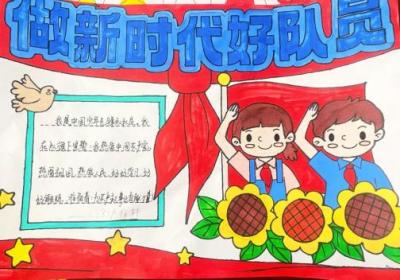 做新时代好队员
我是中国少年先锋队队员。我
在队旗下宣誓：我热爱中国共产党，
热爱祖国，热爱人民，好好学习，好
好锻炼，准备着：为共产主义事业贡献力量